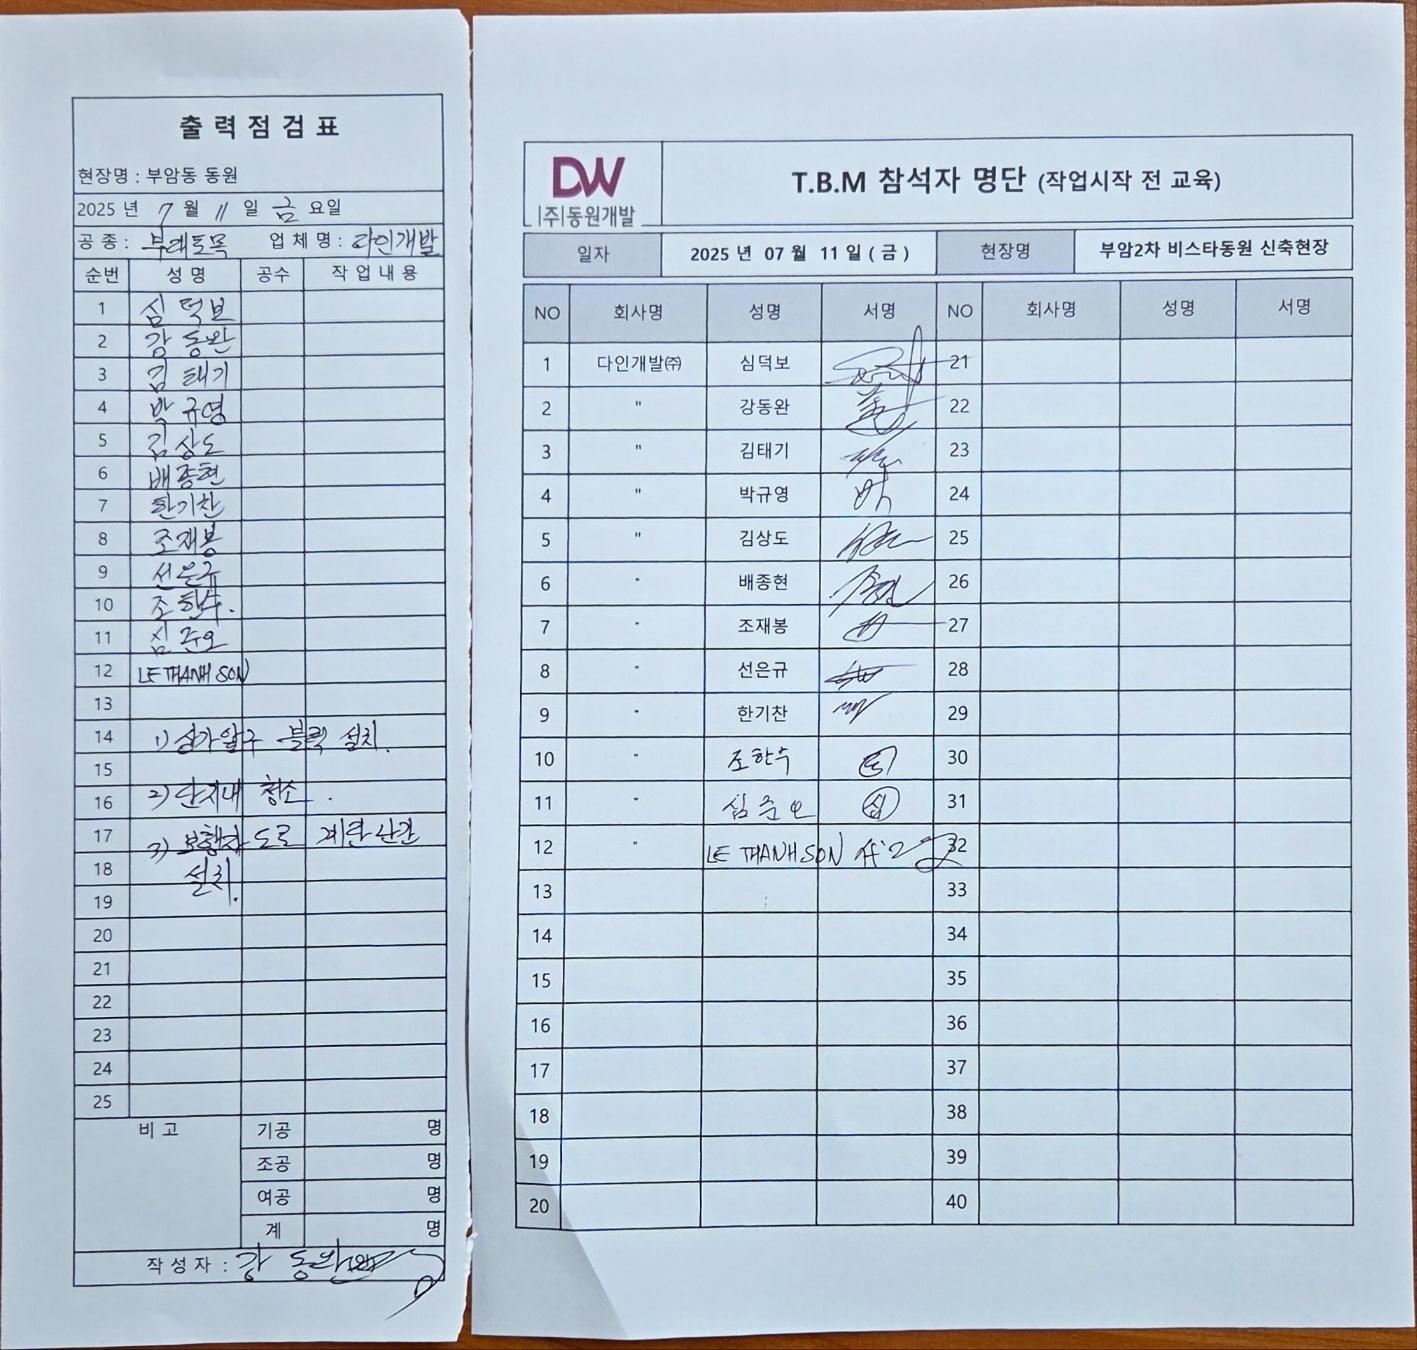 출력점검표
현장명 : 부암동 동원
2025 년 7 월 11 일 금 요일
공 종 : 부대토목 업 체 명 : 다인개발
순번 성 명 공수 작 업 내 용
1 심덕보
2 강동완
3 김태기
4 박규영
5 김상도
6 배종현
7 한기찬
8 조재봉
9 선은규
10 조한수.
11 심준오
12 LE THANH SON
13
14 1) 상가앞구 블럭 설치.
15
16 2) 단지내 청소.
17 3) 보행자 도로 계단 난간
18 설치.
19
20
21
22
23
24
25
비 고 기공 명
조공 명
여공 명
계 명
작 성 자 : 강동완
DW
|주|동원개발
T.B.M 참석자 명단 (작업시작 전 교육)
일자 2025 년 07 월 11 일 ( 금 ) 현장명 부암2차 비스타동원 신축현장
NO 회사명 성명 서명 NO 회사명 성명 서명
1 다인개발㈜ 심덕보 21
2 " 강동완 22
3 " 김태기 23
4 " 박규영 24
5 " 김상도 25
6 " 배종현 26
7 " 조재봉 27
8 " 선은규 28
9 " 한기찬 29
10 " 조한수 30
11 " 심준오 심 31
12 " LE THANH SON 32
13 33
14 34
15 35
16 36
17 37
18 38
19 39
20 40